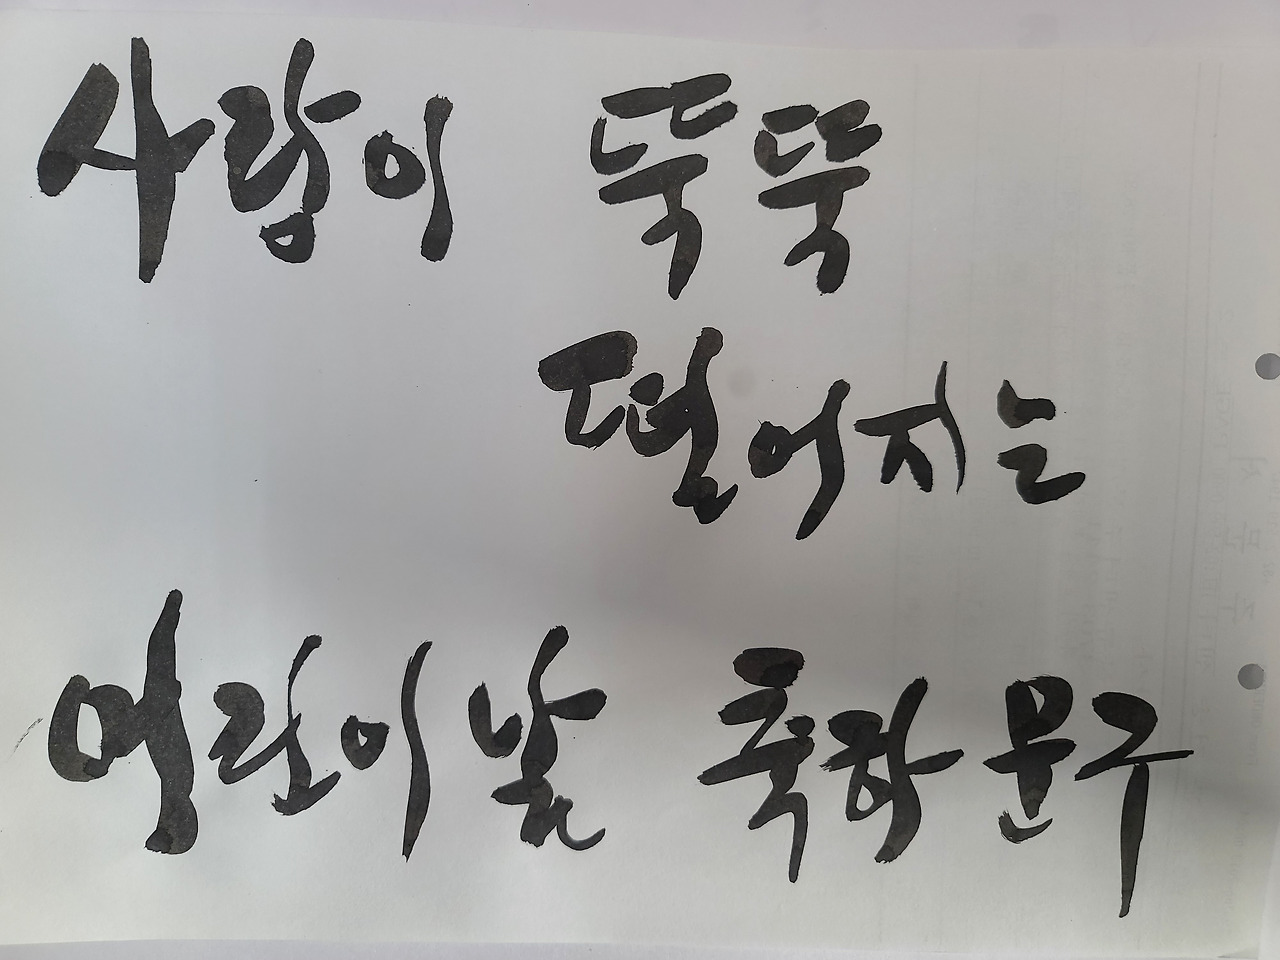 사랑이 뚝뚝
떨어지는
어린이날 축하 문구